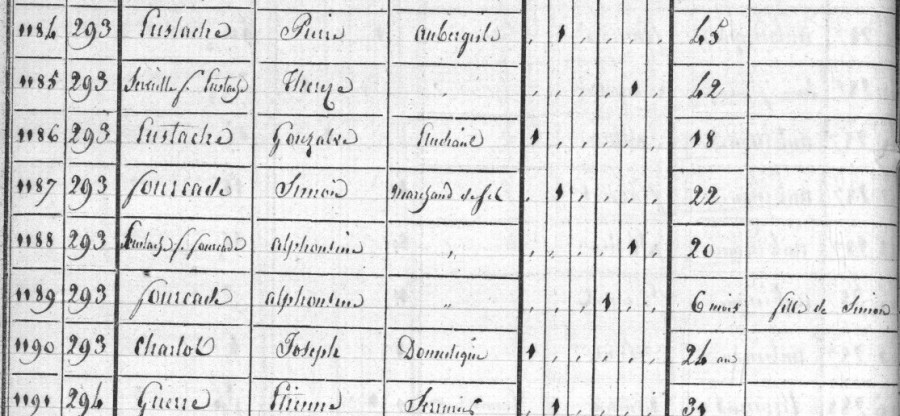 1184 293 Eustache Pierre aubergiste 45
1185 293 f. Eustache Thereze 42
1186 293 Eustache Gonzalve Etudiant 18
1187 293 fourcade Simon Marchand de fer 22
1188 293 Eustache f. fourcade alphontine " 20
1189 293 fourcade alphontine " 6 mois fille de Simon
1190 293 Charlot Joseph Domestique 24 an
1191 294 Guerre Etienne